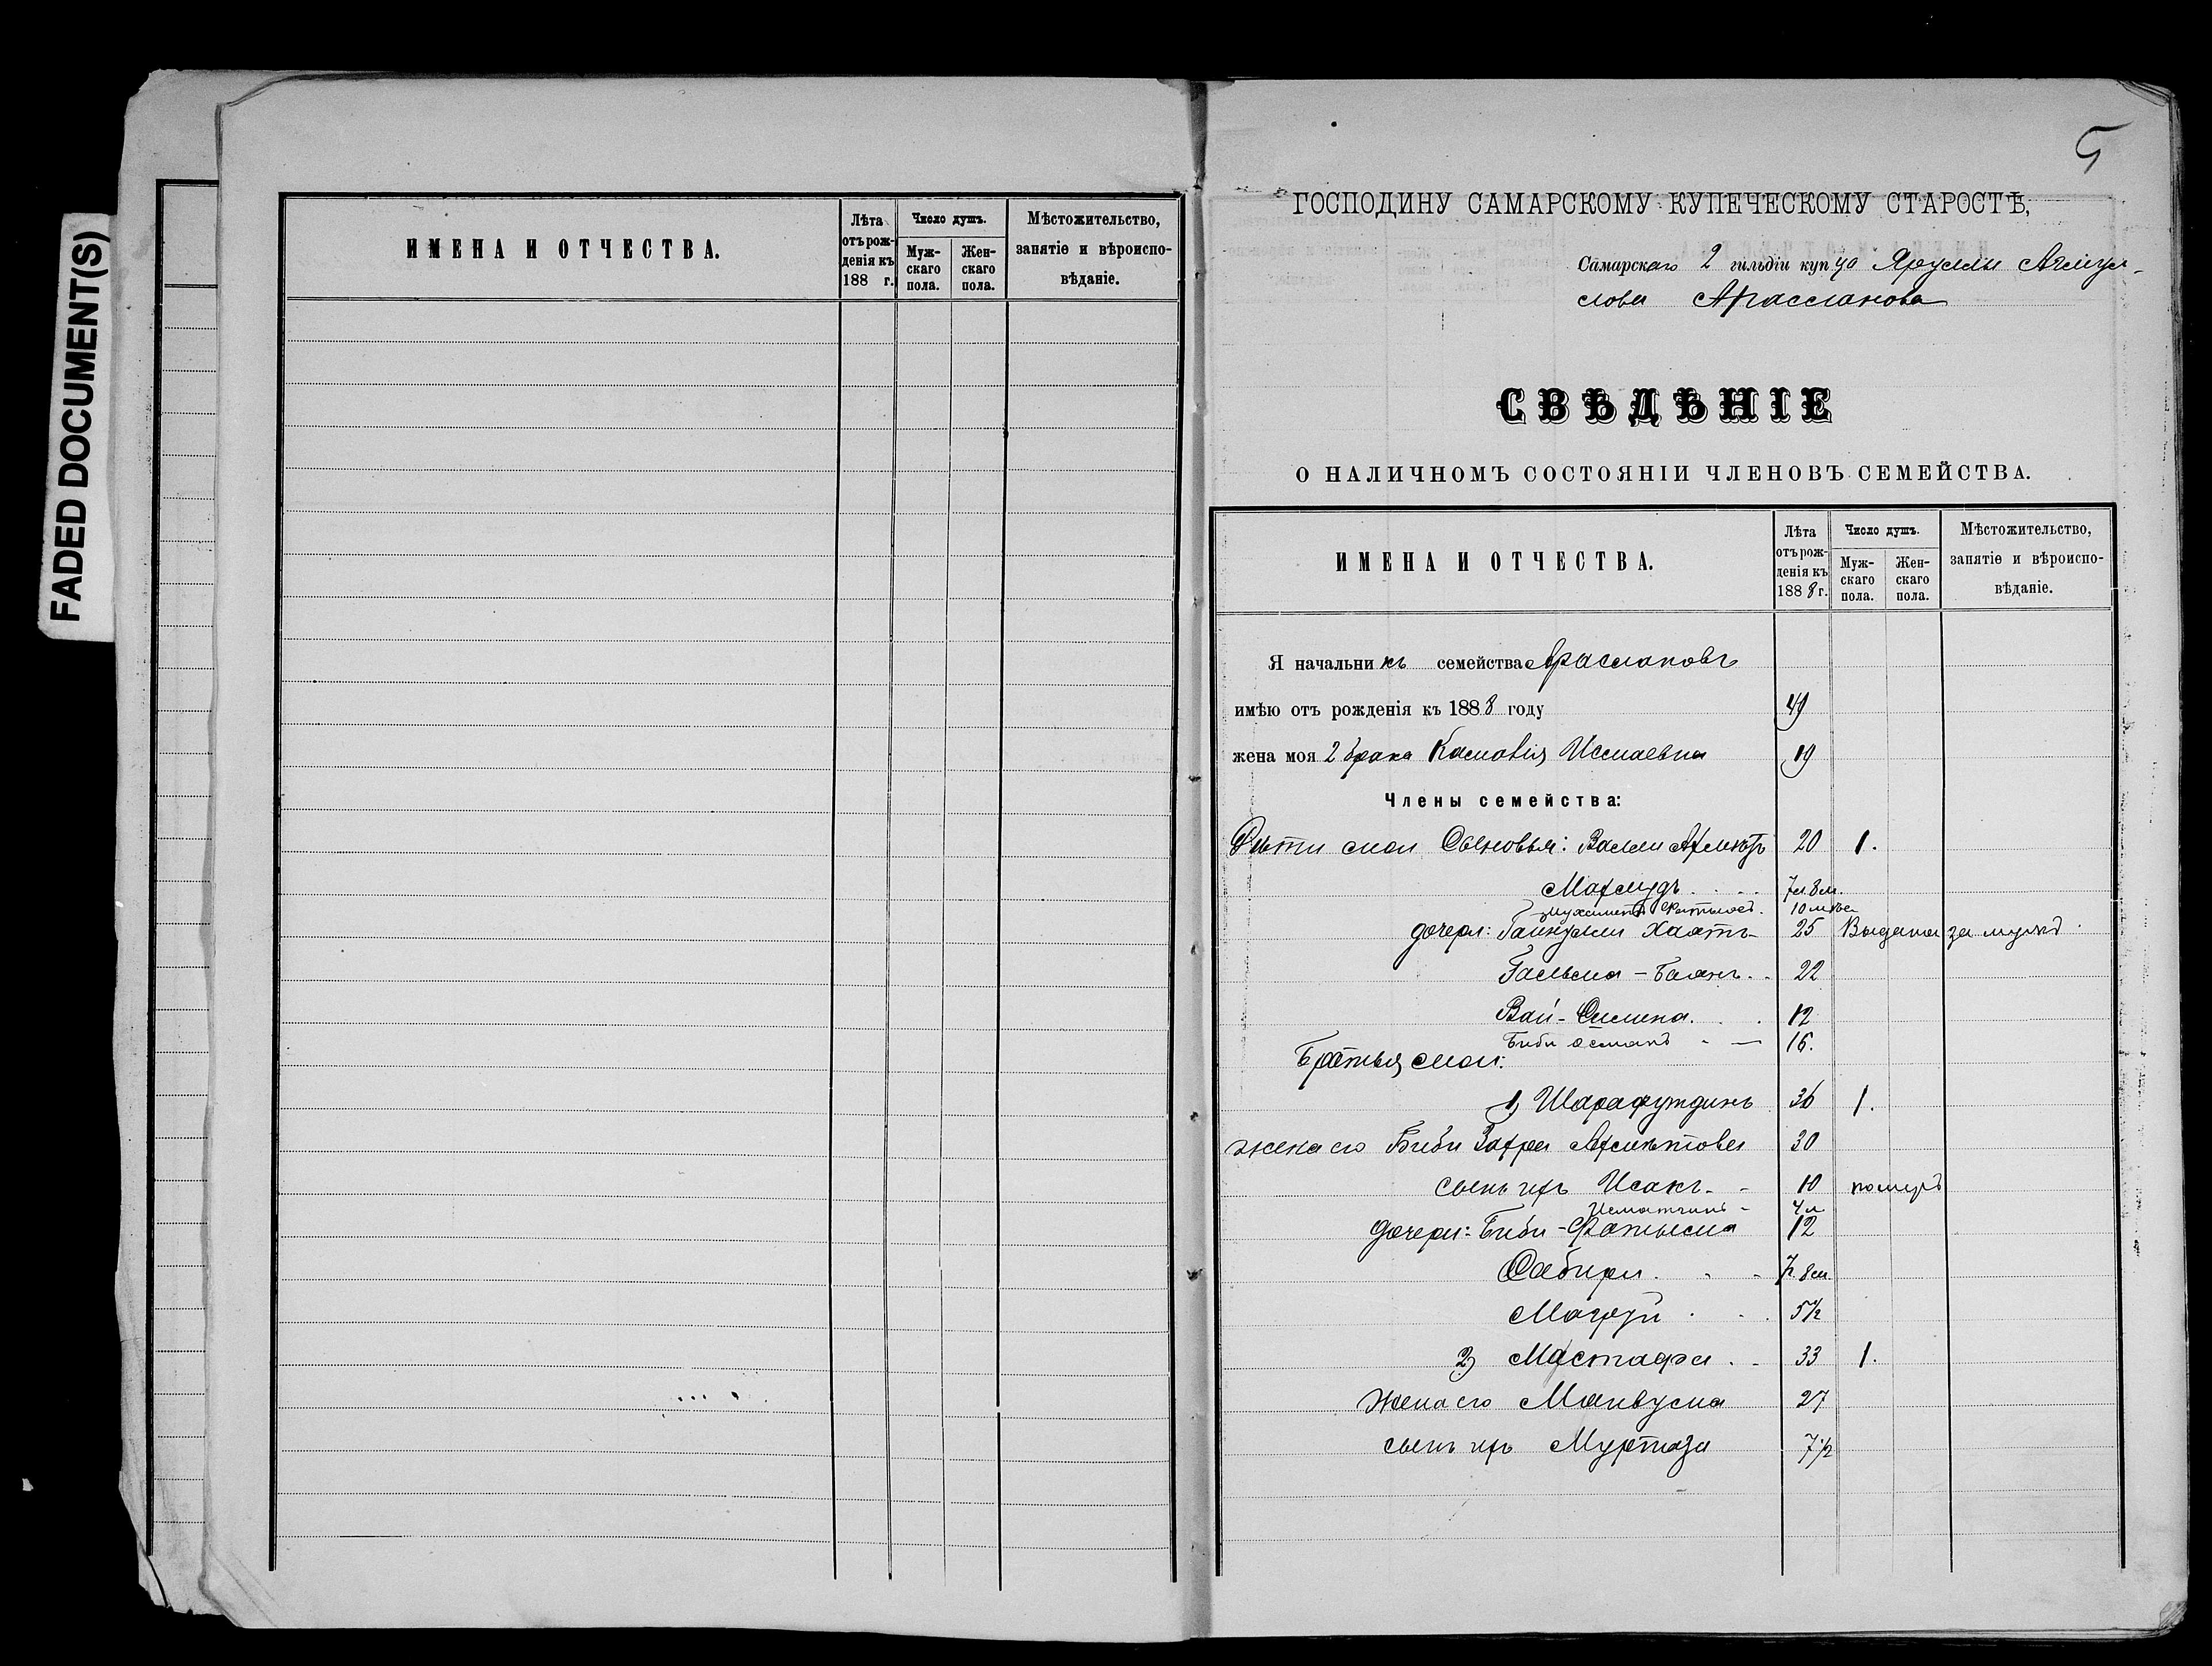 FADED DOCUMENT(S)
ИМЕНА И ОТЧЕСТВА.
Лѣта отъ рожденія къ 188 г.
Число душъ.
Мужскаго пола.
Женскаго пола.
Мѣстожительство, занятіе и вѣроисповѣданіе.
5
ГОСПОДИНУ САМАРСКОМУ КУПЕЧЕСКОМУ СТАРОСТѢ,
Самарскаго 2 гильдіи купца Ярулли
Арасланова
СВѢДѢНІЕ
О НАЛИЧНОМЪ СОСТОЯНІИ ЧЛЕНОВЪ СЕМЕЙСТВА.
ИМЕНА И ОТЧЕСТВА.
Лѣта отъ рожденія къ 1888 г.
Число душъ.
Мужскаго пола.
Женскаго пола.
Мѣстожительство, занятіе и вѣроисповѣданіе.
Я начальникъ семейства Араслановъ
имѣю отъ рожденія къ 1888 году 49
жена моя 2 брака Исмаевна 19
Члены семейства:
Дѣти мои Сыновья: Валли Ахметъ 20 1.
Махмудъ 7 л. 8 м.
10 мѣс
дочери: Хаятъ 25 Выдана за мужъ.
22
12
Биби 16.
Братья мои:
1) Шарафутдинъ 36 1.
жена его Биби Захра Ахметова 30
сынъ ихъ Исакъ 10 померъ
4 л
дочери: Биби-Фатыма 12
Сабира 7 л. 8 м.
5 1/2
2) Мустафа 33 1.
Жена его 27
сынъ ихъ Муртаза 7 1/2